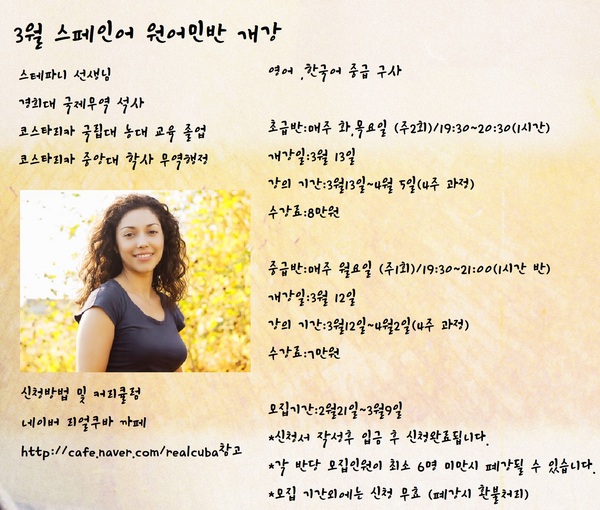 3월 스페인어 원어민반 개강
스테파니 선생님
경희대 국제무역 석사
코스타리카 국립대 농대 교육 졸업
코스타리카 중앙대 학사 무역행정
신청방법 및 커리큘럼
네이버 리얼쿠바 까페
http://cafe.naver.com/realcuba참고
영어 ,한국어 중급 구사
초급반:매주 화,목요일 (주2회)/19:30~20:30(1시간)
개강일:3월 13일
강의 기간:3월13일~4월 5일(4주 과정)
수강료:8만원
중급반:매주 월요일 (주1회)/19:30~21:00(1시간 반)
개강일:3월 12일
강의 기간:3월12일~4월2일(4주 과정)
수강료:7만원
모집기간:2월21일~3월9일
*신청서 작성후 입금 후 신청완료됩니다.
*각 반당 모집인원이 최소 6명 미만시 폐강될 수 있습니다.
*모집 기간외에는 신청 무효 (폐강시 환불처리)